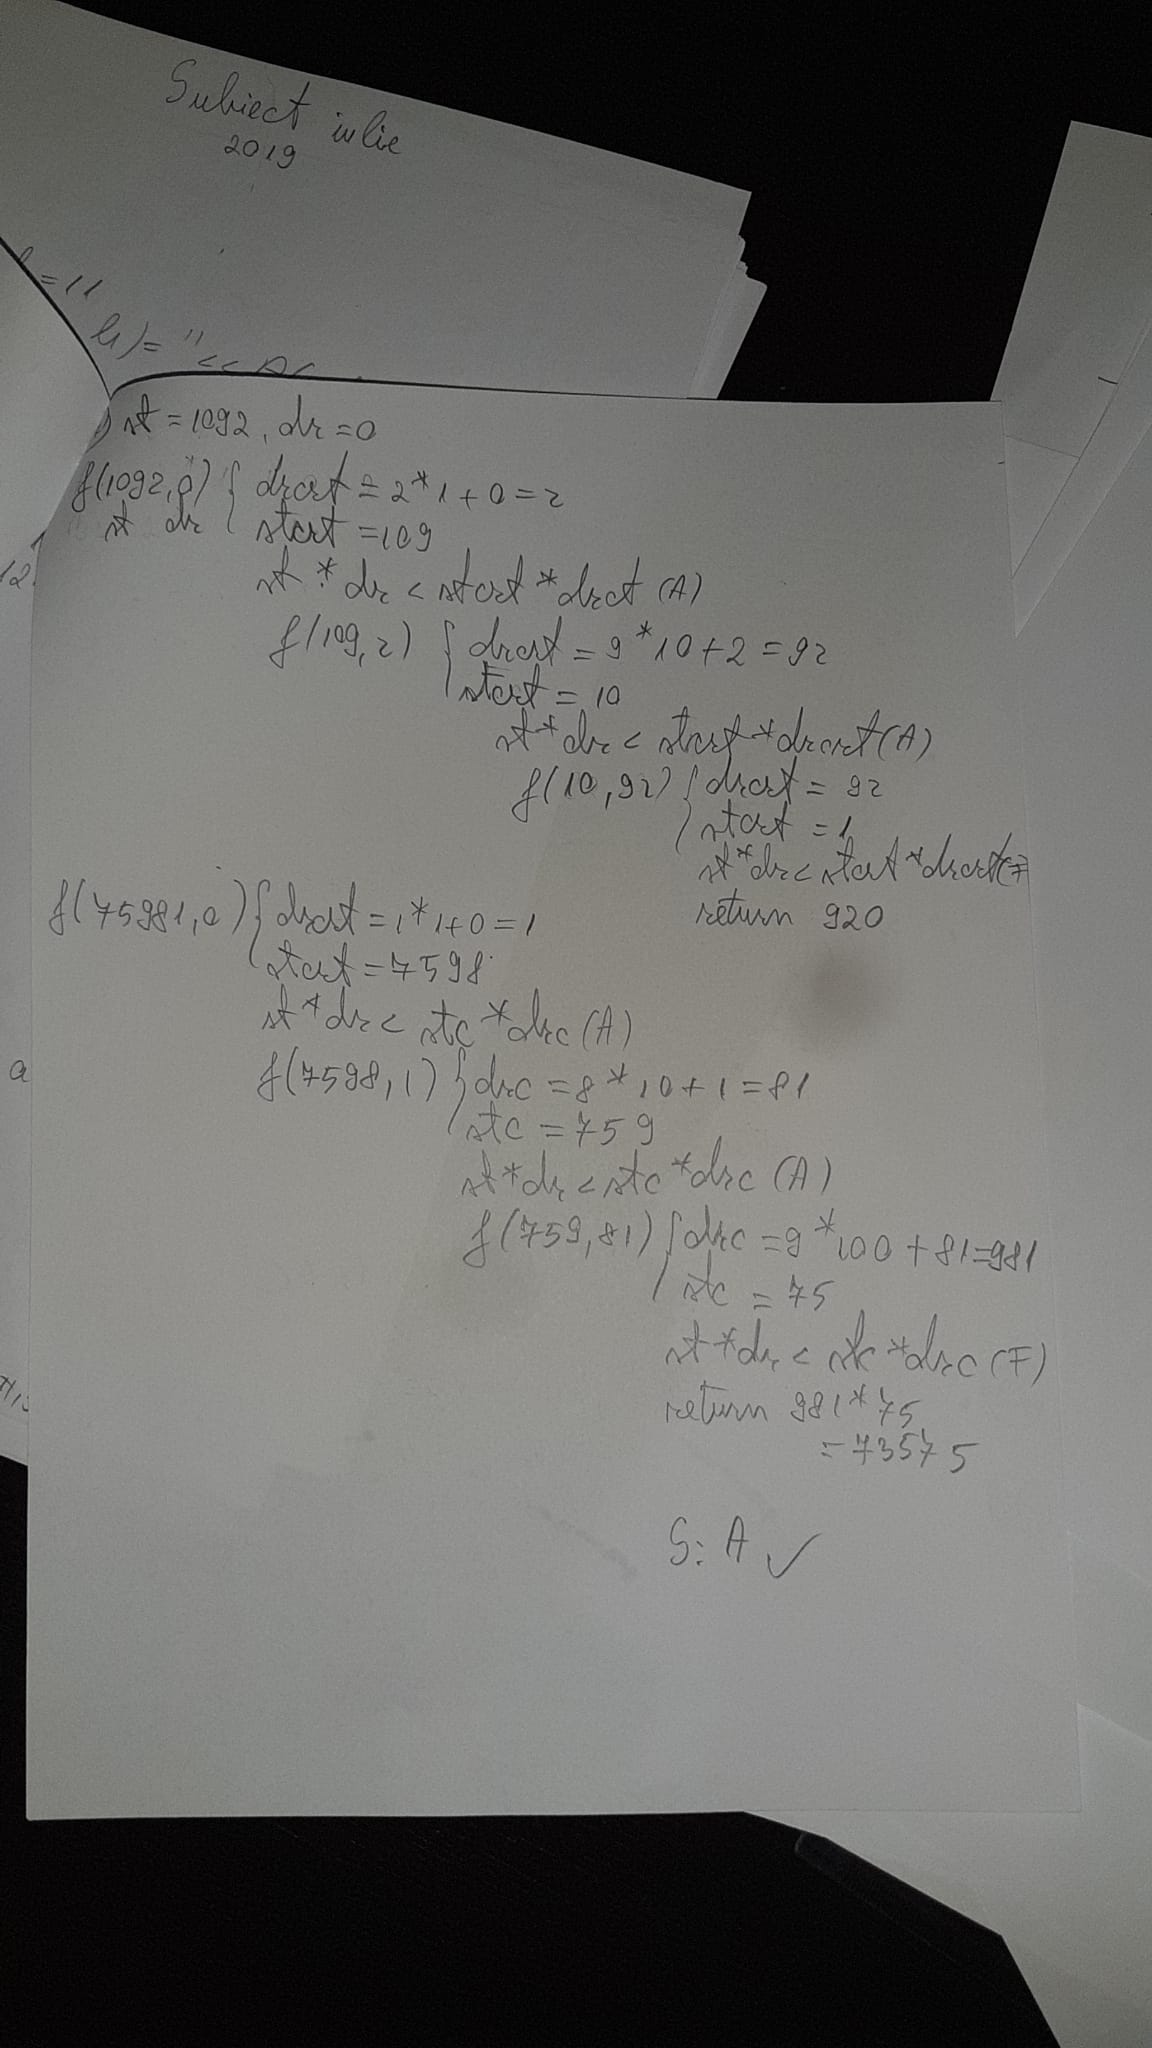 Subiect iulie
2019
=11
b)= "<<
st = 1092, dr = 0
f(1092, 0) { drcrt = 2*1+0=2
st dr start =109
st * dr < stcrt * drct (A)
f(109, 2) { drcrt = 9*10+2=92
stcrt = 10
st*dr < stcrt*drcrt (A)
f(10, 92) { drcrt = 92
stcrt = 1
st*dr< stcrt*drcrt(F
return 920
f(75981, 0) { drcrt = 1*1+0=1
stcrt = 7598
st*dr < stc *drc (A)
f(7598, 1) { drc = 8*10+1=81
stc = 759
st*dr < stc *drc (A)
f(759, 81) { drc = 9*100+81=981
stc = 75
st*dr < stc *drc (F)
return 981*75
= 73575
S: A ✓
12
a